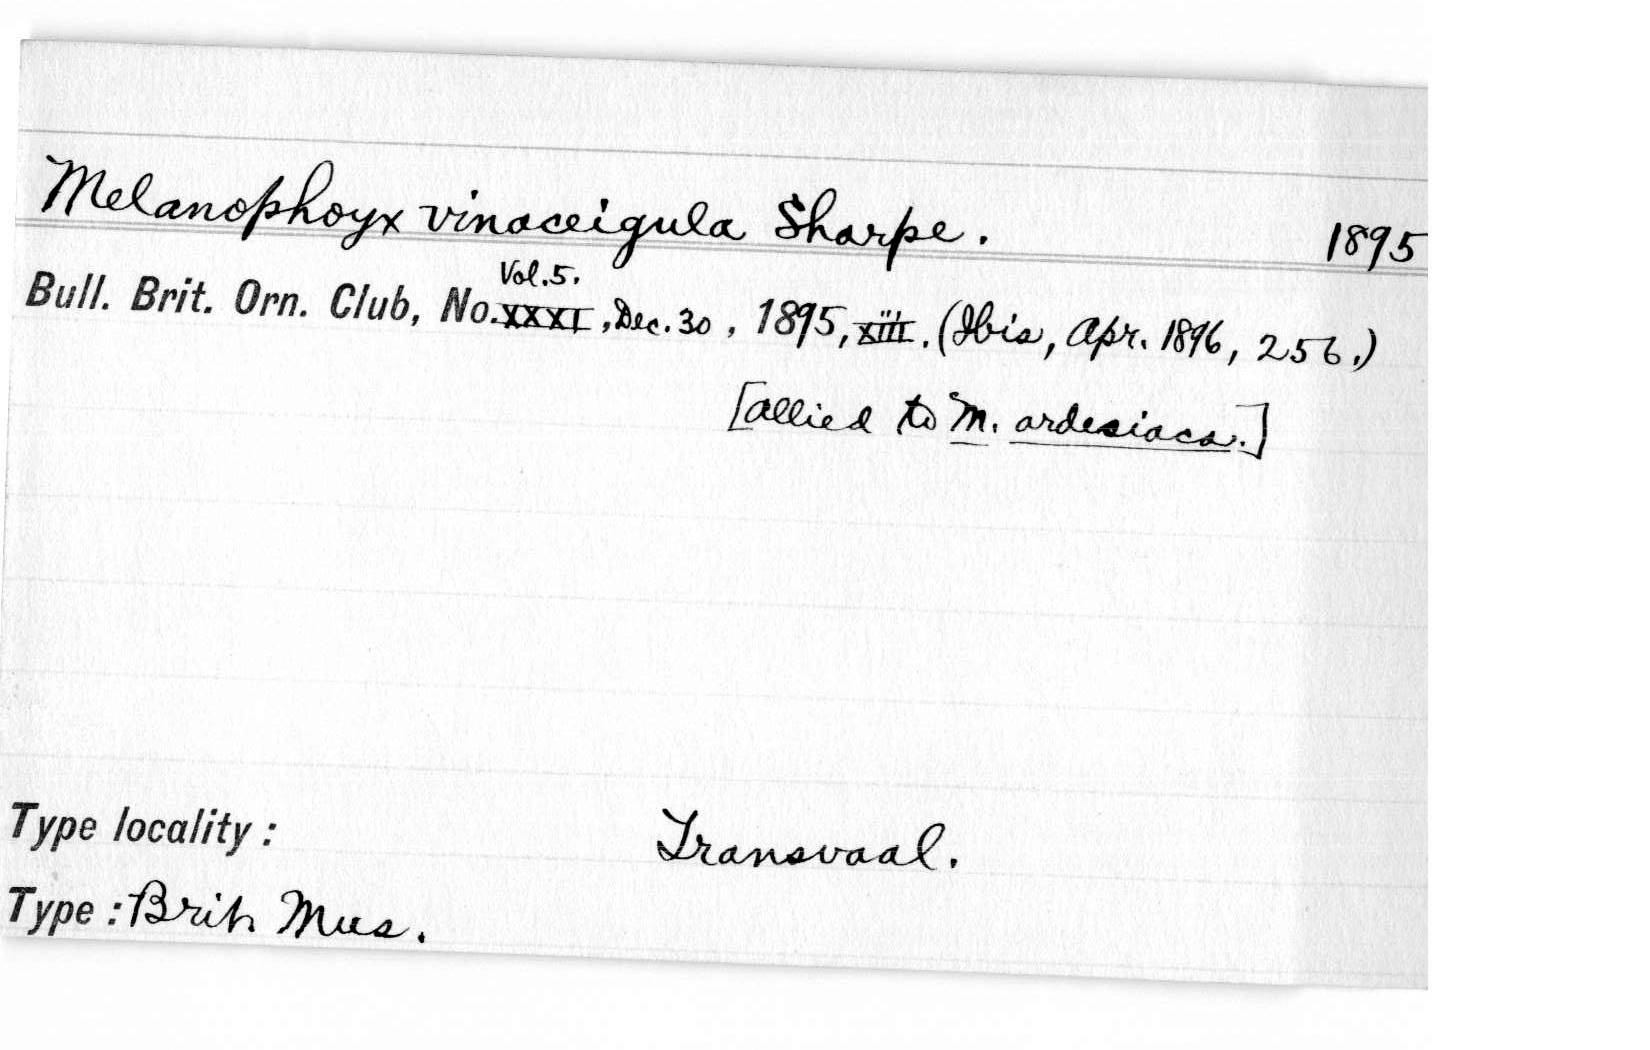 Melanophoyx vinaceigula Sharpe. 1895
Vol. 5.
Bull. Brit. Orn. Club, No. XXXI, Dec. 30, 1895, xiii. (Ibis, Apr. 1896, 256.)
[allied to M. ardesiaca.]
Type locality: Transvaal.
Type: Brit. Mus.